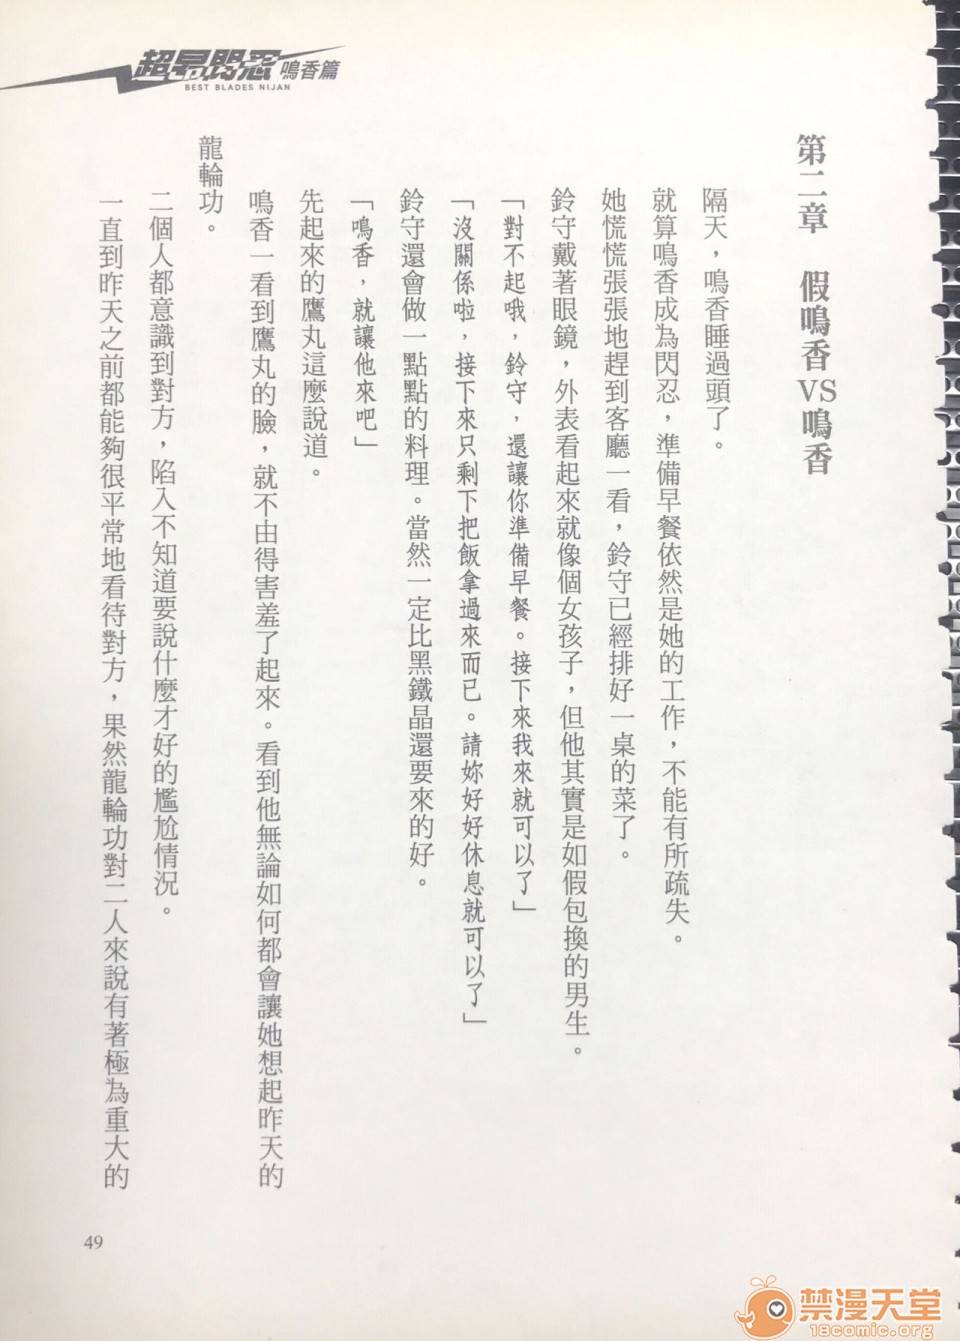 超昂閃忍 鳴香篇
BEST BLADES NIJAN
第二章　假鳴香VS鳴香
隔天，鳴香睡過頭了。
就算鳴香成為閃忍，準備早餐依然是她的工作，不能有所疏失。
她慌慌張張地趕到客廳一看，鈴守已經排好一桌的菜了。
鈴守戴著眼鏡，外表看起來就像個女孩子，但他其實是如假包換的男生。
「對不起哦，鈴守，還讓你準備早餐。接下來我來就可以了」
「沒關係啦，接下來只剩下把飯拿過來而已。請妳好好休息就可以了」
鈴守還會做一點點的料理。當然一定比黑鐵晶還要來的好。
「鳴香，就讓他來吧」
先起來的鷹丸這麼說道。
鳴香一看到鷹丸的臉，就不由得害羞了起來。看到他無論如何都會讓她想起昨天的
龍輪功。
二個人都意識到對方，陷入不知道要說什麼才好的尷尬情況。
一直到昨天之前都能夠很平常地看待對方，果然龍輪功對二人來說有著極為重大的
49
禁漫天堂
18comic.org